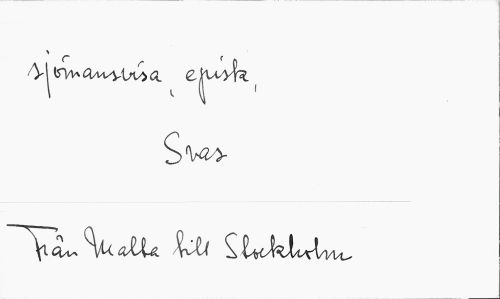 sjömansvisa, episk,
Svas
Från Malta till Stockholm